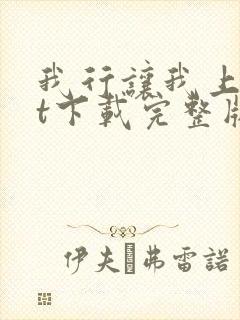 我行讓我上
t下載完整版
伊夫 弗雷諾